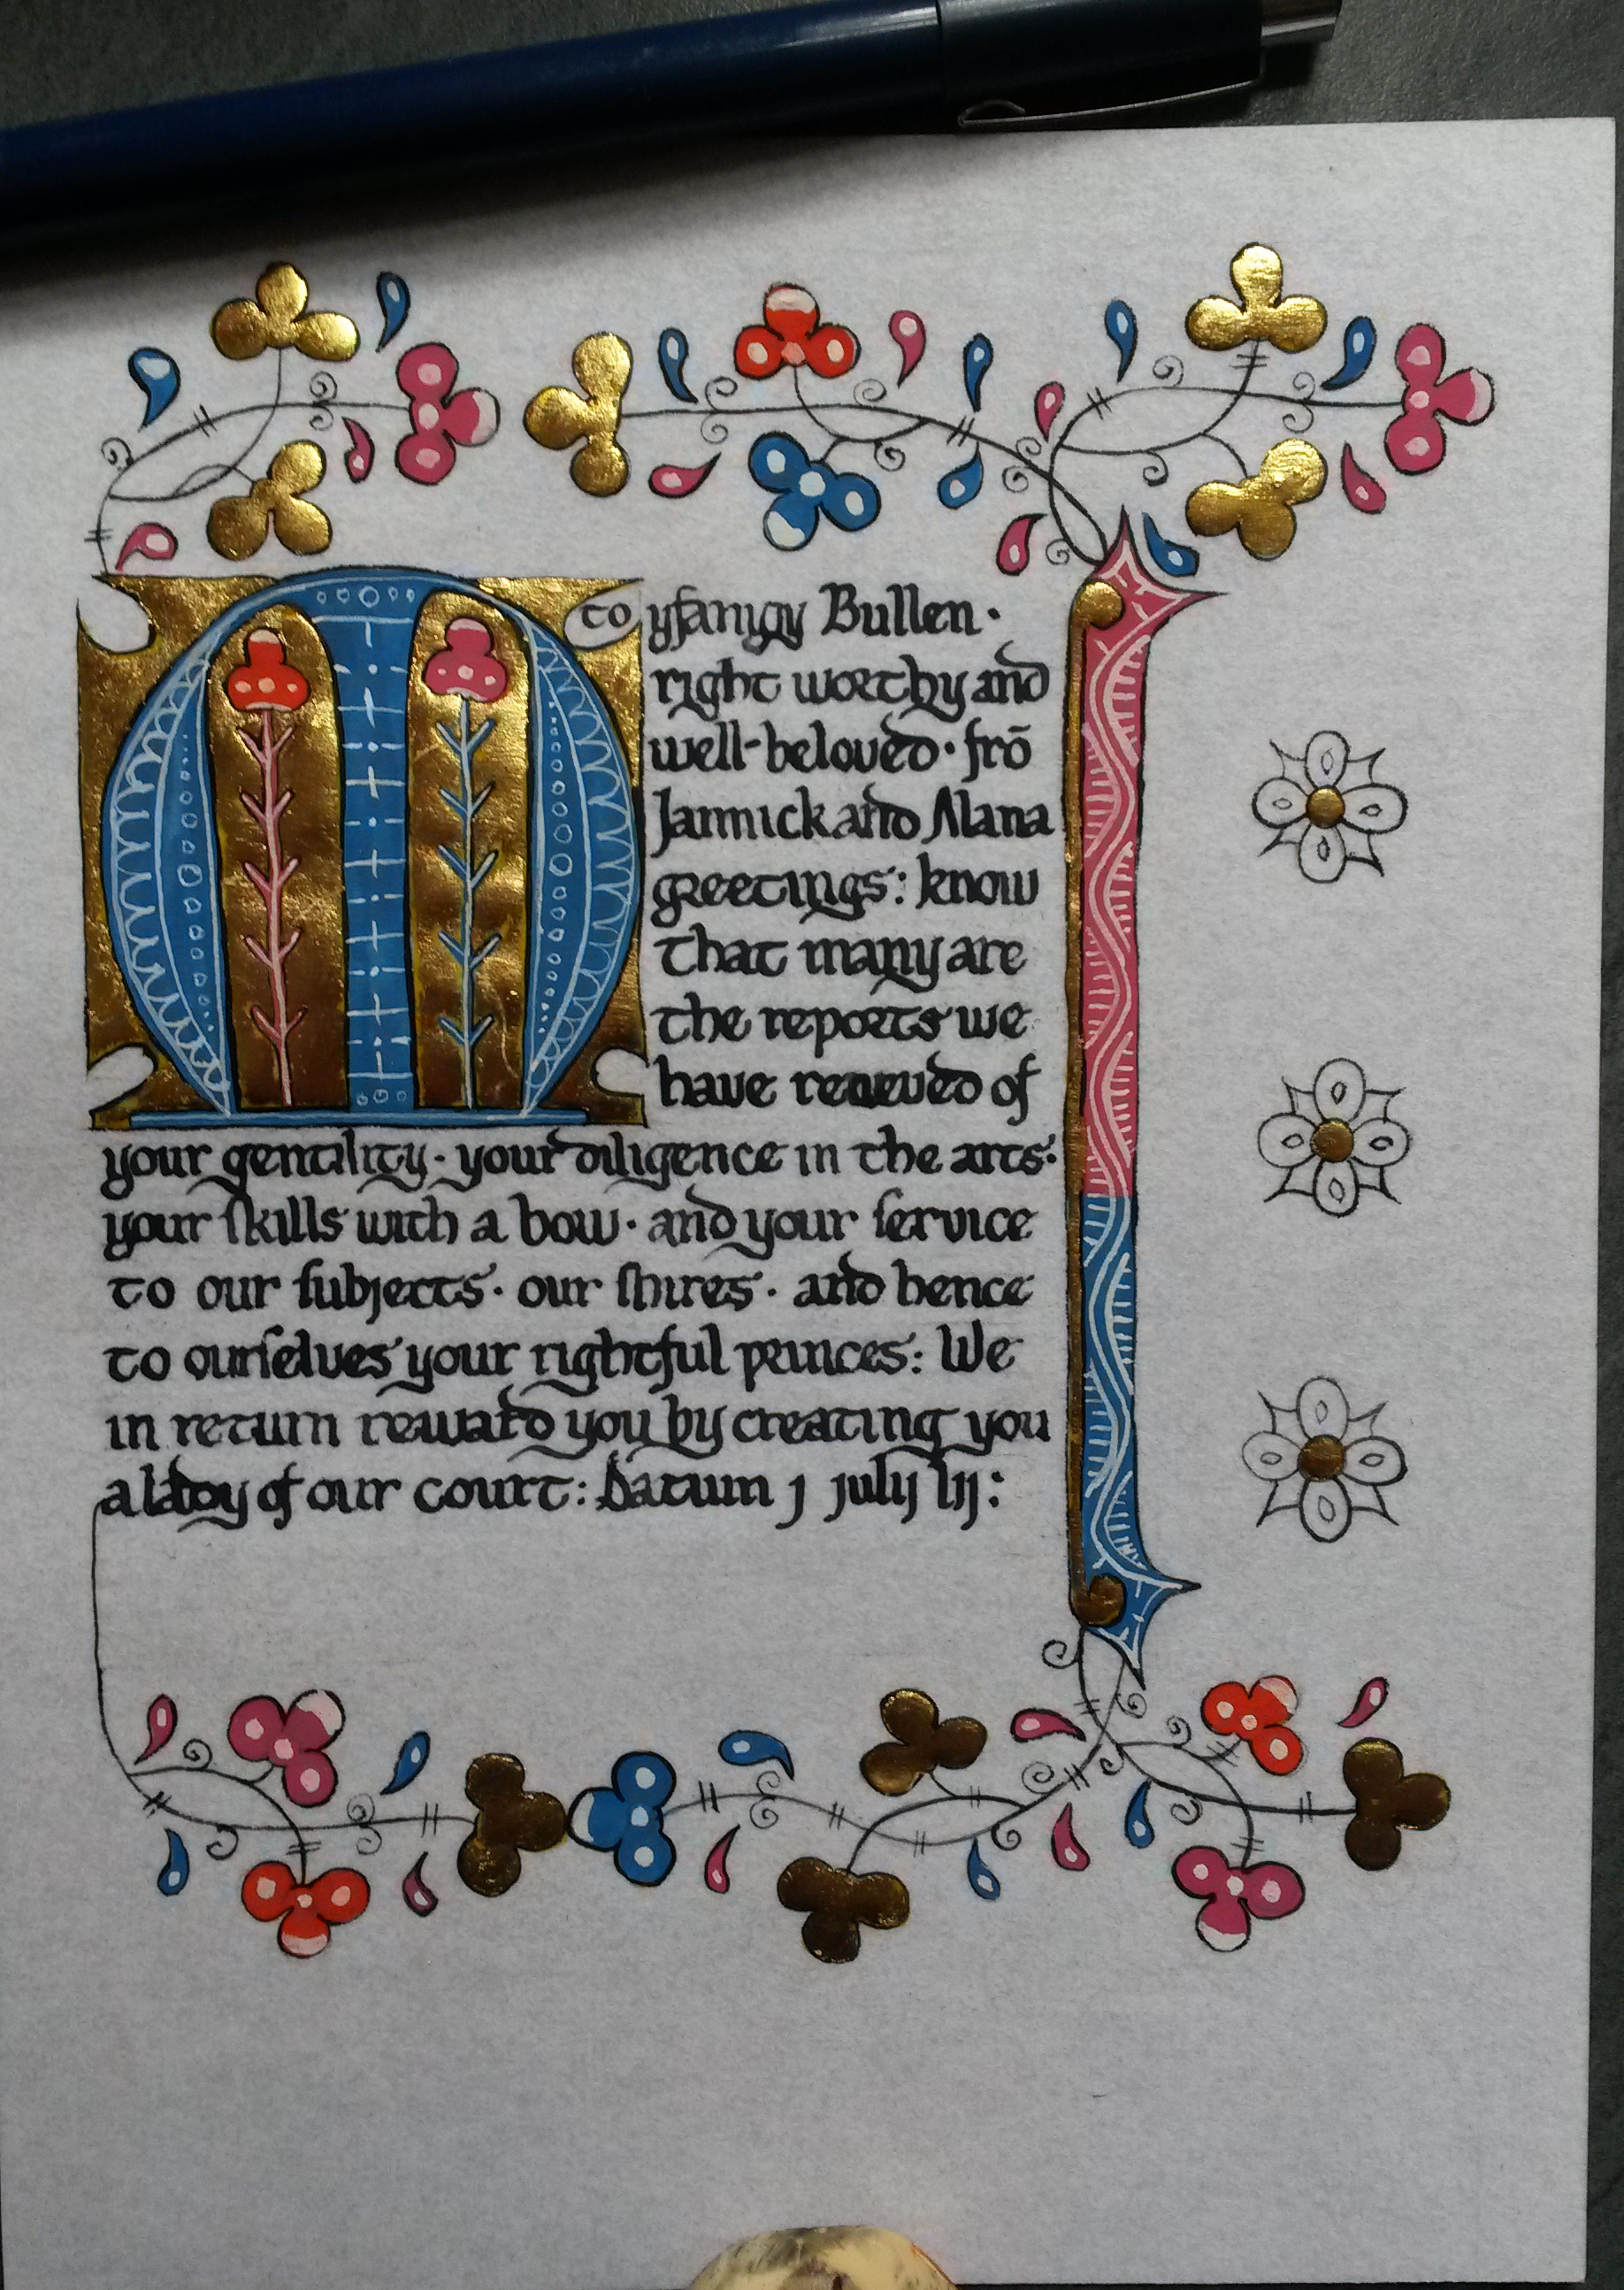 to Myfanwy Bullen·
right worthy and
well-beloved· frō
Jannick and Alana
greetings: know
that many are
the reports we
have received of
your gentility· your diligence in the arts·
your ſkills with a bow· and your ſervice
to our ſubjects· our ſhires· and hence
to ourſelves your rightful princes: We
in return reward you by creating you
a lady of our court: Datum j julij lij: